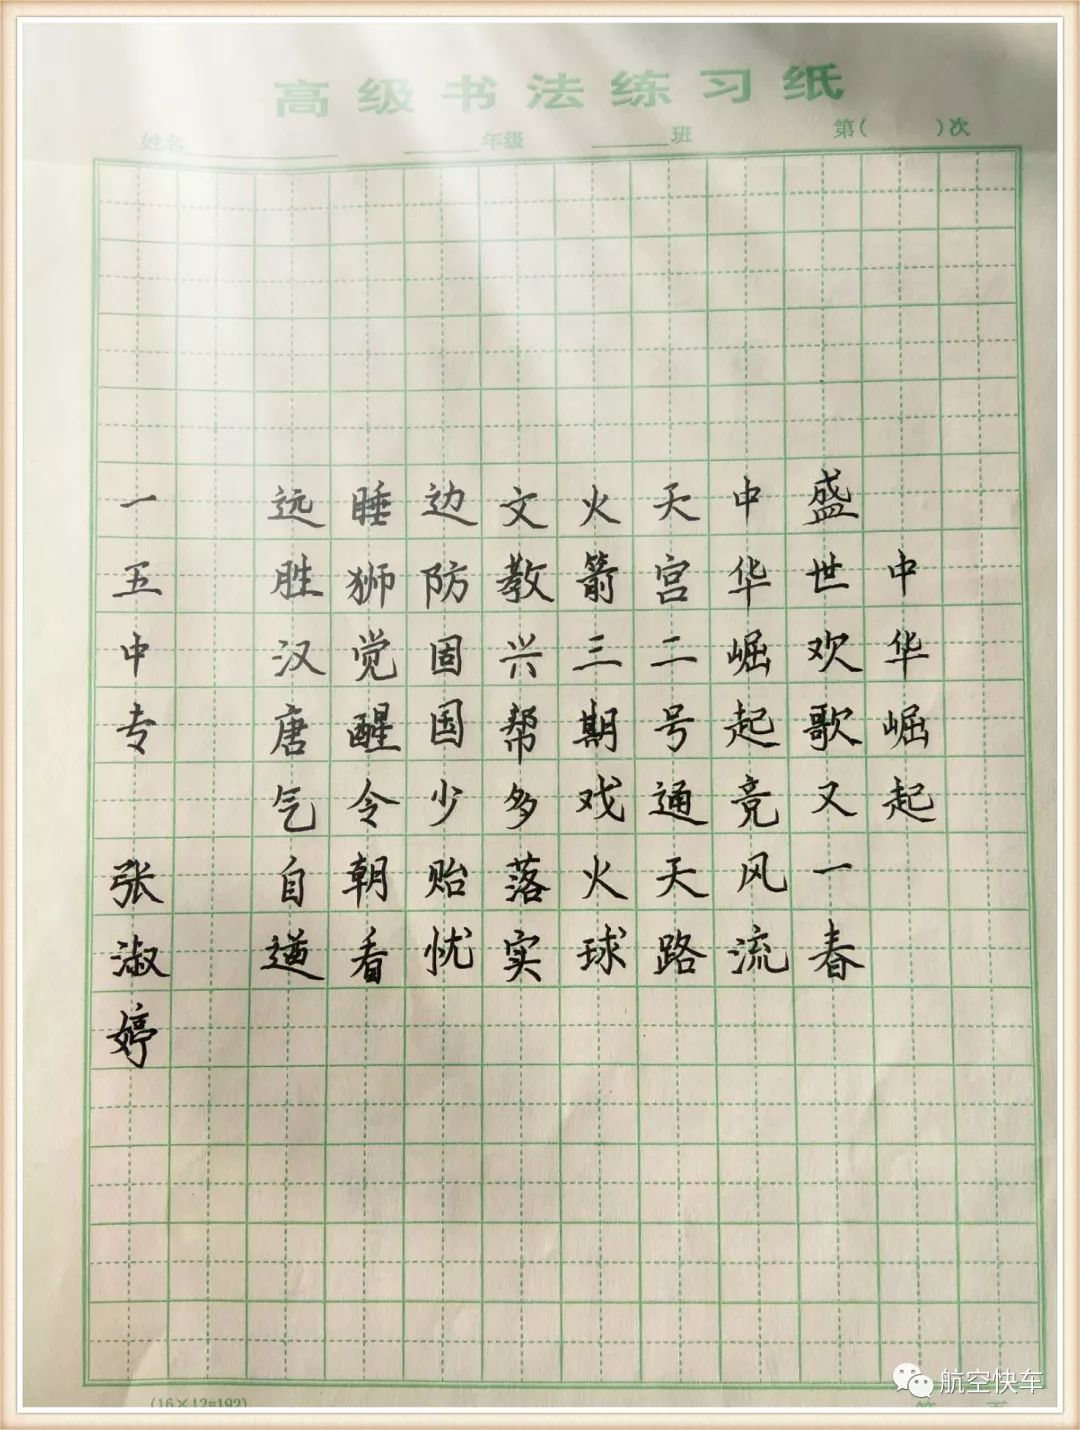 高级书法练习纸
姓名 年级 班 第( )次
中华崛起
盛世欢歌又一春
中华崛起竞风流
天宫二号通天路
火箭三期戏火球
文教兴帮多落实
边防固国少贻忧
睡狮觉醒令朝看
远胜汉唐气自遒
一五中专 张淑婷
(16×12=192)
航空快车